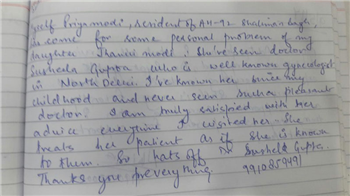 myself Priya modi, resident of A4-92 Shalimar bagh,
I've come for some personal problem of my
daughter Shanvi modi. I've seen doctor
Susheela Gupta who is well known gynecologist
in North Delhi. I've known her since my
childhood and never seen such a pleasant
doctor. I am truly satisfied with her
advice everytime I visited her. She
treats her patient as if she is known
to them. So hats off Dr Sushela Gupta.
Thanks you for everything.